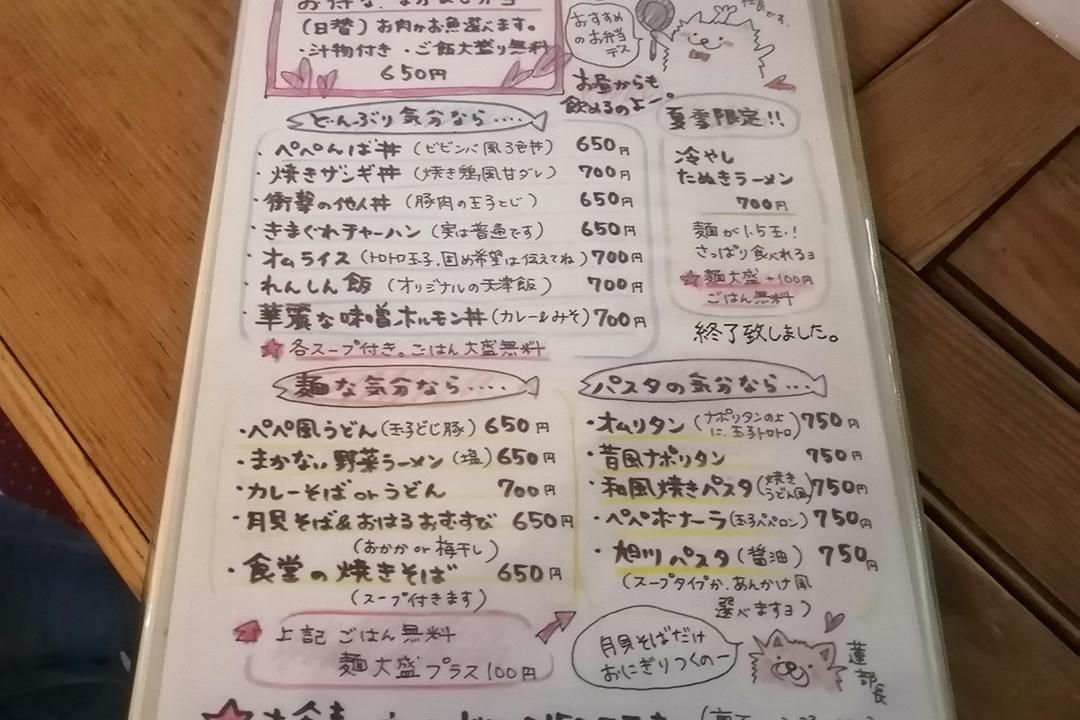 (日替) お肉かお魚選べます。
・汁物付き ・ご飯大盛り無料
650円
おすすめ
のお弁当
デス
お昼からも
飲めるのよー。
どんぶり気分なら・・・・
・ペペんば丼 (ビビンバ風3色丼) 650円
・焼きザンギ丼 (焼き鶏風甘ダレ) 700円
・衝撃の他人丼 (豚肉の玉子とじ) 650円
・きまぐれチャーハン (実は普通です) 650円
・オムライス (トロトロ玉子、固め希望は伝えてね) 700円
・れんしん飯 (オリジナルの天津飯) 700円
・華麗な味噌ホルモン丼 (カレー&みそ) 700円
★各スープ付き。ごはん大盛無料
夏季限定!!
冷やし
たぬきラーメン
700円
麺が1.5玉・!
さっぱり食べれるョ
★麺大盛+100円
ごはん無料
終了致しました。
麺な気分なら・・・・
・ペペ風うどん (玉子とじ豚) 650円
・まかない野菜ラーメン (塩) 650円
・カレーそば or うどん 700円
・月見そば&おはるおむすび 650円
(おかか or 梅干し)
・食堂の焼きそば 650円
(スープ付きます)
★上記 ごはん無料
麺大盛プラス100円
パスタの気分なら・・・
・オムリタン (ナポリタンの上に、玉子トロトロ) 750円
・昔風ナポリタン 750円
・和風焼きパスタ (焼きうどん風) 750円
・ペペボナーラ (玉子ペペロン) 750円
・旭川パスタ (醤油) 750円
(スープタイプか、あんかけ風
選べますョ)
月見そばだけ
おにぎりつくのー
蓮部長